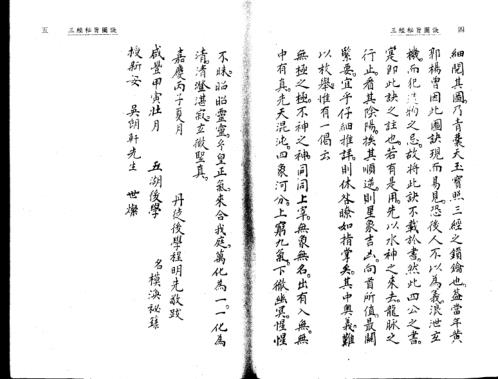 三經秘旨圖訣
四
細閱其圖乃青囊天玉寶照三經之鎖鑰也蓋當年黃
郭楊曾因此圖訣現而易見恐後人不以為義浪泄玄
機而犯造物之忌故將此訣不載於書然此四公之書
寔即此訣之註也若有是用先以水神之來去龍脈之
行止看其陰陽挨其順逆則星象吉凶向首所值最關
緊要宜乎仔細推詳則休咎瞭如指掌矣其中奥義難
以枚舉惟有一偈云
無極之極不神之神同同上宰無象無名出有入無無
中有真先天混沌四象河分上窮九氣下徹幽冥惺惺
三經秘旨圖訣
五
不昧昭昭靈靈至皇正氣來合我庭萬化為一一化為
清清澄湛寂立徵聖真
嘉慶丙子夏月 丹徒後學程明先敬跋
咸豐甲寅壯月 五湖後學 名模渙祕錄
授新安 吳朗軒先生 世燦